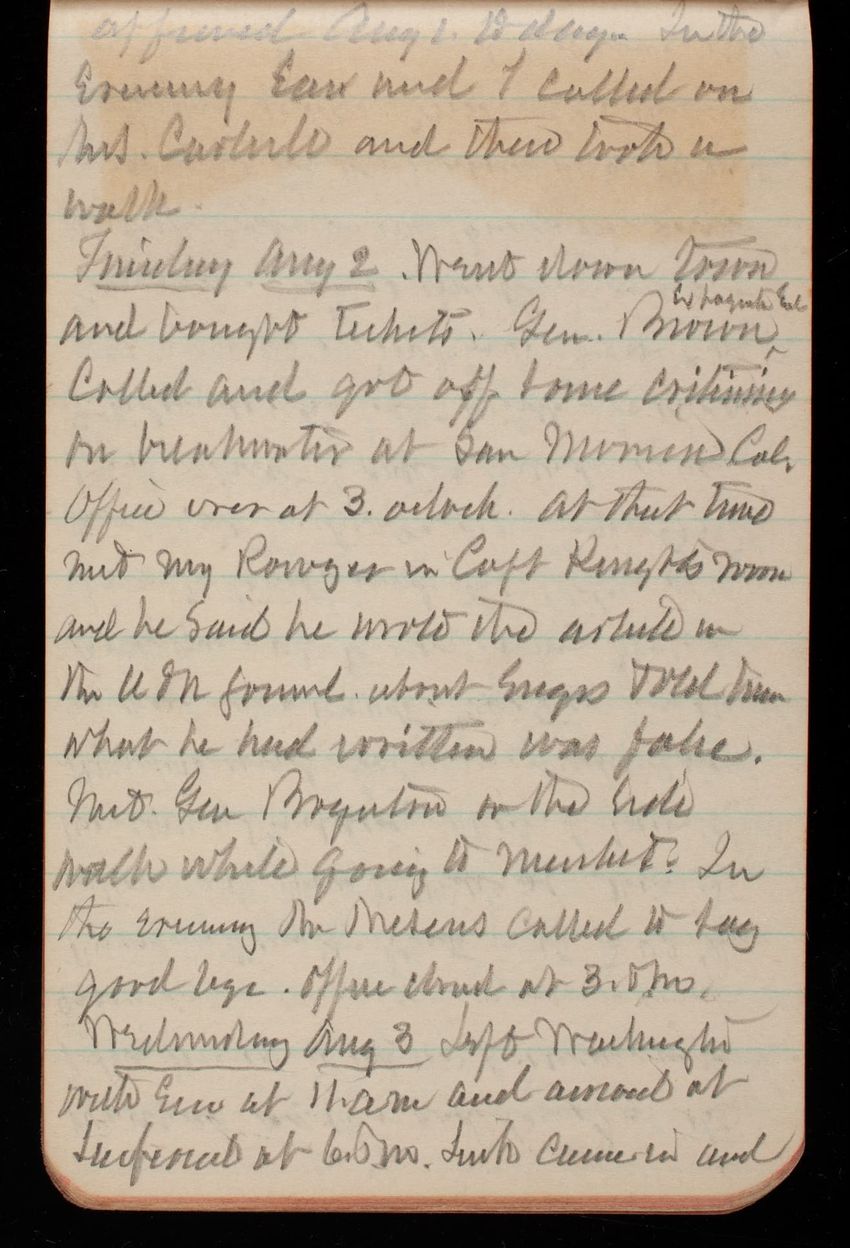 appeared Aug 1. to day. In the
Evening Eau and I called on
Mrs. Carlisle and then took a
walk.
Tuesday Aug 2. Went down town
and bought tickets. Gen. Brown
Called and got off some
on breakwater at San Cal.
Office over at 3. oclock. At that time
met in Capt Knights room
and he said he wrote the article in
the A & N Journal. about told him
what he had written was false.
Met. Gen Boynton on the side
walk while going to market. In
the evening the called to say
good bye. Office closed at 3. Pm.
Wednesday Aug 3 Left Washington
with at 11. am and arrived at
at 6. Pm. came in and